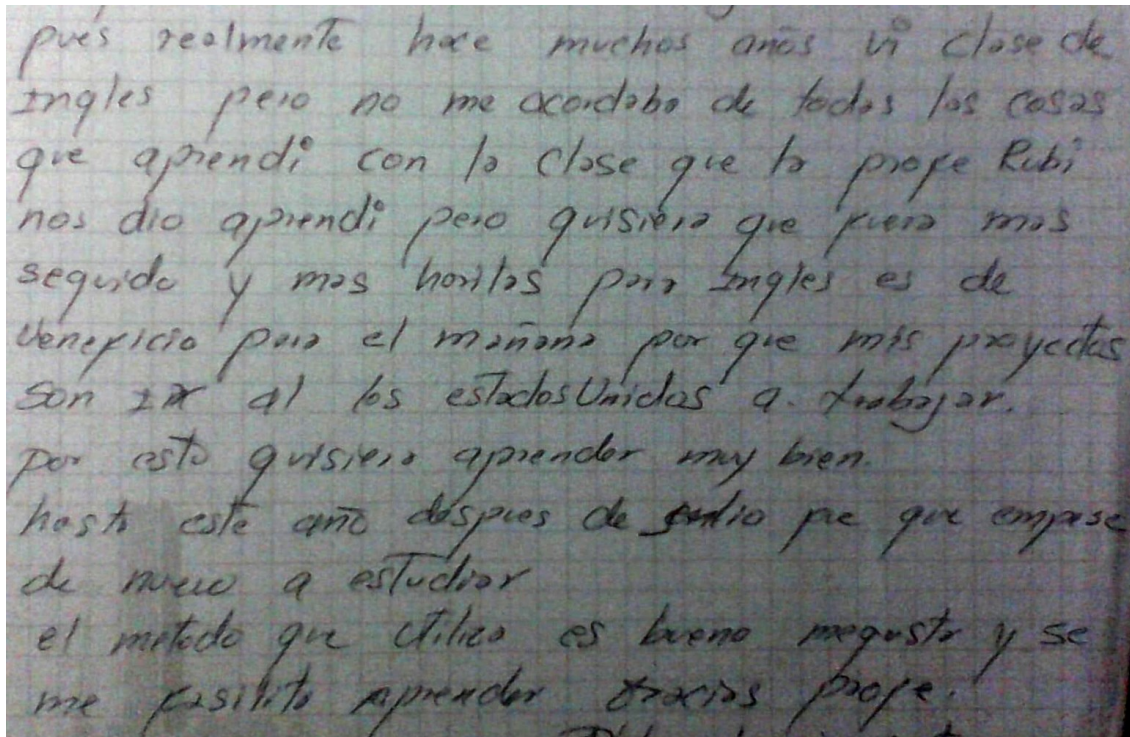 pues realmente hace muchos años vi clase de
Ingles pero no me acordaba de todas las cosas
que aprendi con la clase que la profe Rubi
nos dio aprendi pero quisiera que fuera mas
seguido y mas horitas para Ingles es de
beneficio para el mañana por que mis proyectos
son ir al los estados Unidos a trabajar.
por esto quisiera aprender muy bien.
hasta este año despues de julio fue que empase
de nuevo a estudiar
el metodo que utiliza es bueno megusta y se
me fasilita aprender gracias profe.